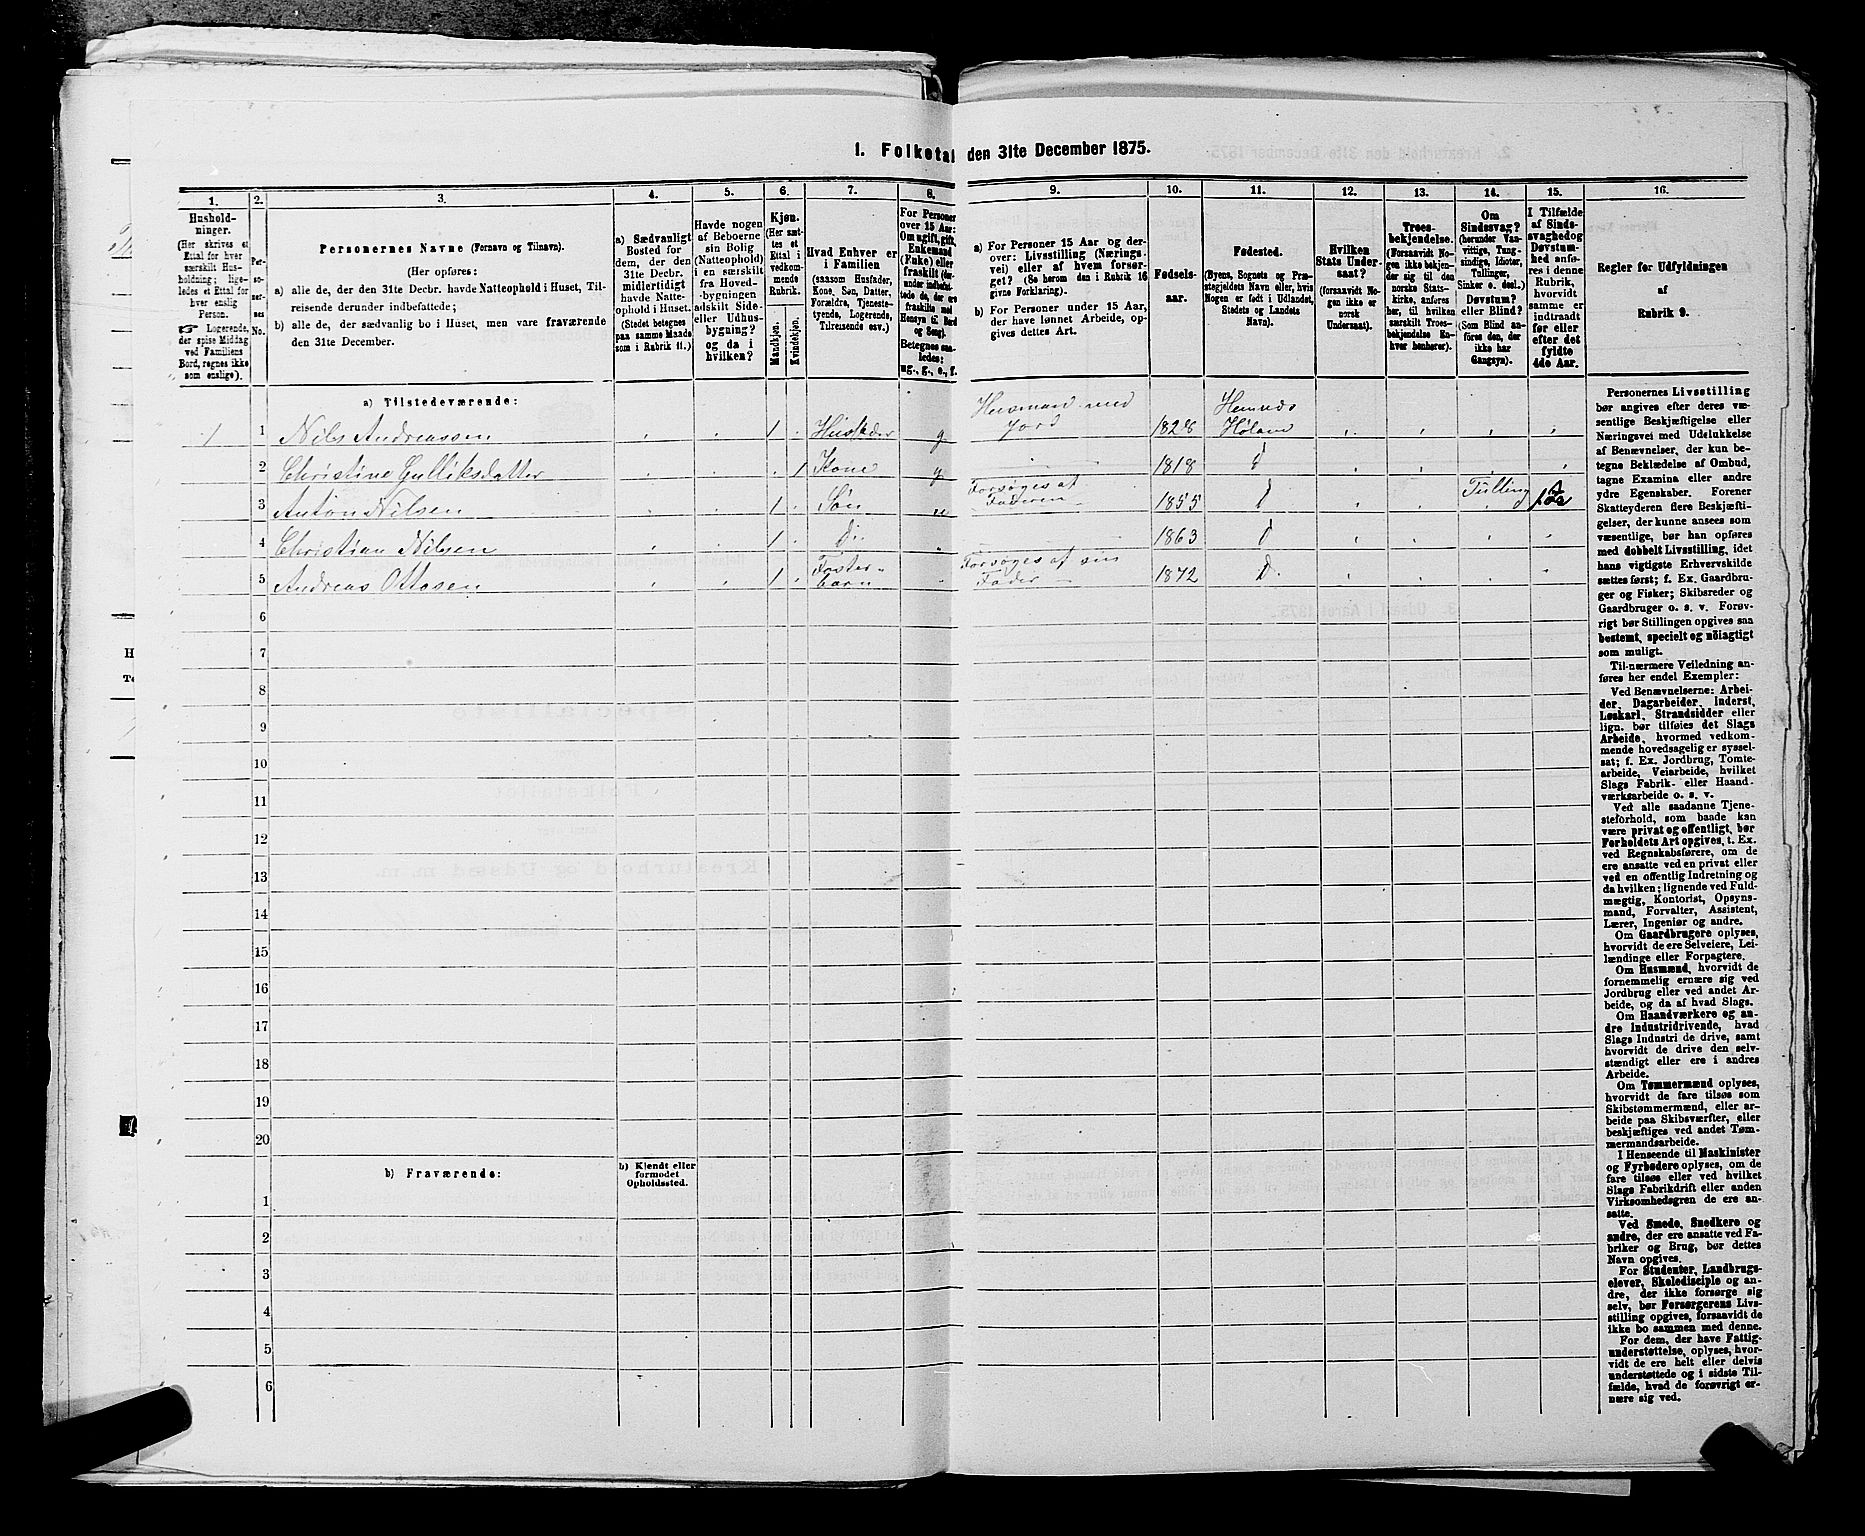 1. Folketal den 31te December 1875.
1.
Hushold-
ninger.
(Her skrives et
Ettal for hver
særskilt Hus-
holdning; lige-
ledes et Ettal for
hver enslig
Person.
☞ Logerende,
der spise Middag
ved Familiens
Bord, regnes ikke
som enslige).
2.
Per-
so-
ner-
nes
No.
3.
Personernes Navne (Fornavn og Tilnavn).
(Her opføres:
a) alle de, der den 31te Decbr. havde Natteophold i Huset, Til-
reisende derunder indbefattede;
b) alle de, der sædvanlig bo i Huset, men vare fraværende
den 31te December.
4.
a) Sædvanligt
Bosted for
dem, der den
31te Decbr.
midlertidigt
havde Natte-
ophold i Huset.
(Stedet betegnes
paa samme Maade
som i Rubrik 11.)
5.
Havde nogen
af Beboerne
sin Bolig
(Natteophold)
i en særskilt
fra Hoved-
bygningen
adskilt Side-
eller Udhus-
bygning?
og da i
hvilken?
6.
Kjøn.
(Her sæt-
tes et
Ettal i
vedkom-
mende
Rubrik.
Mandkjøn.
Kvindekjøn.
7.
Hvad Enhver er
i Familien
(saasom Husfader,
Kone, Søn, Datter,
Forældre, Tjeneste-
tyende, Logerende,
Tilreisende osv.)
8.
For Personer
over 15 Aar:
Om ugift, gift,
Enkemand
(Enke) eller
fraskilt
Betegnes saa-
ledes:
ug., g., e., f.
9.
a) For Personer 15 Aar og der-
over: Livsstilling (Nærings-
vei) eller af hvem forsør-
get? (Se herom den i Rubrik 16
givne Forklaring).
b) For Personer under 15 Aar,
der have lønnet Arbeide, op-
gives dettes Art.
10.
Fødsels-
aar.
11.
Fødested.
(Byens, Sognets og Præ-
stegjeldets Navn eller, hvis
Nogen er født i Udlandet,
Stedets og Landets
Navn).
12.
Hvilken
Stats Under-
saat?
(forsaavidt No-
gen ikke er
norsk
Undersaat).
13.
Troes-
bekjendelse.
(Forsaavidt No-
gen ikke bekjen-
der sig til den
norske Stats-
kirke, anføres
her, til hvilken
særskilt Troes-
bekjendelse En-
hver henhører).
14.
Om
Sindssvag?
(herunder Van-
vittige, Tung-
sindige, Idioter,
Tullinger,
Sinker o. desl.)
Døvstum?
eller Blind?
(Som Blind an-
føres den, der
ikke har
Gangsyn).
15.
I Tilfælde
af Sinds-
svaghed og
Døvstum-
hed anfø-
res i denne
Rubrik,
hvorvidt
samme er
indtraadt
før eller
efter det
fyldte
4de Aar.
16.
Regler for Udfyldningen
af
Rubrik 9.
a) Tilstedeværende:
1 1 Nils Andreassen 1 Husfader g Husmand med Jord 1828 Hemnes Høland
2 Christine Gulliksdatter 1 Kone g 1818 d
3 Anton Nilsen 1 Søn Forsørges af Faderen 1855 d Tulling
4 Christian Nilsen 1 Do 1863 d
5 Andreas Ottosen 1 Foster-barn Forsørges af sin Fader 1872 D
6
7
8
9
10
11
12
13
14
15
16
17
18
19
20
b) Fraværende:
b) Kjendt eller
formodet
Opholdssted.
1
2
3
4
5
6
Personernes Livsstilling
bør angives efter deres væ-
sentlige Beskjæftigelse eller
Næringsvei med Udelukkelse
af Benævnelser, der kun be-
tegne Beklædelse af Ombud,
tagne Examina eller andre
ydre Egenskaber. Forener
Skatteyderen flere Beskjæfti-
gelser, der kunne ansees som
væsentlige, bør han opføres
med dobbelt Livsstilling, idet
hans vigtigste Erhvervskilde
sættes først; f. Ex. Gaardbru-
ger og Fisker; Skibsreder og
Gaardbruger o. s. v. Forøv-
rigt bør Stillingen opgives saa
bestemt, specielt og nöiagtigt
som muligt.
Til nærmere Veiledning an-
føres her endel Exempler:
Ved Benævnelserne: Arbei-
der, Dagarbeider, Inderst,
Løskarl, Strandsidder eller
lign. bør tilføies det Slags
Arbeide, hvormed vedkom-
mende hovedsagelig er syssel-
sat; f. Ex. Jordbrug, Tomte-
arbeide, Veiarbeide, hvilket
Slags Fabrik- eller Haand-
værksarbeide o. s. v.
Ved alle saadanne Tjene-
steforhold, som baade kan
være privat og offentligt, bør
Forholdets Art opgives, t. Ex.
ved Regnskabsførere, om de
ere ansatte ved en privat eller
ved en offentlig Indretning og
da hvilken; lignende ved Fuld-
mægtig, Kontorist, Opsyns-
mand, Forvalter, Assistent,
Lærer, Ingeniør og andre.
Om Gaardbrugere oplyses,
hvorvidt de ere Selveiere, Lei-
lændinge eller Forpagtere.
Om Husmænd, hvorvidt de
fornemmelig ernære sig ved
Jordbrug eller ved andet Ar-
beide, og da af hvad Slags.
Om Haandværkere og an-
dre Industridrivende, hvad
Slags Indnstri de drive, samt
hvorvidt de drive den selv-
stændigt eller ere i andres
Arbeide.
Om Tømmermænd oplyses,
hvorvidt de fare tilsøs som
Skibstømmermænd, eller ar-
beide paa Skibsværfter, eller
beskjæftiges ved andet Tøm-
mermandsarbeide.
I Henseende til Maskinister
og Fyrbødere oplyses, om de
fare tilsøs eller ved hvilket
Slags Fabrikdrift eller anden
Virksomhedsgren de ere an-
satte.
Ved Smede, Snedkere og
andre, der ere ansatte ved Fa-
briker og Brug, bør dettes
Navn opgives.
For Studenter, Landbrugs-
elever, Skoledisciple og an-
dre, der ikke forsørge sig
selv, bør Forsørgerens Livs-
stilling opgives, forsaavidt de
ikke bo sammen med denne.
For dem, der have Fattig-
understøttelse, oplyses, hvor-
vidt de ere helt eller delvis
understøttede og i sidste Til-
fælde, hvad de forøvrigt er-
nære sig ved.